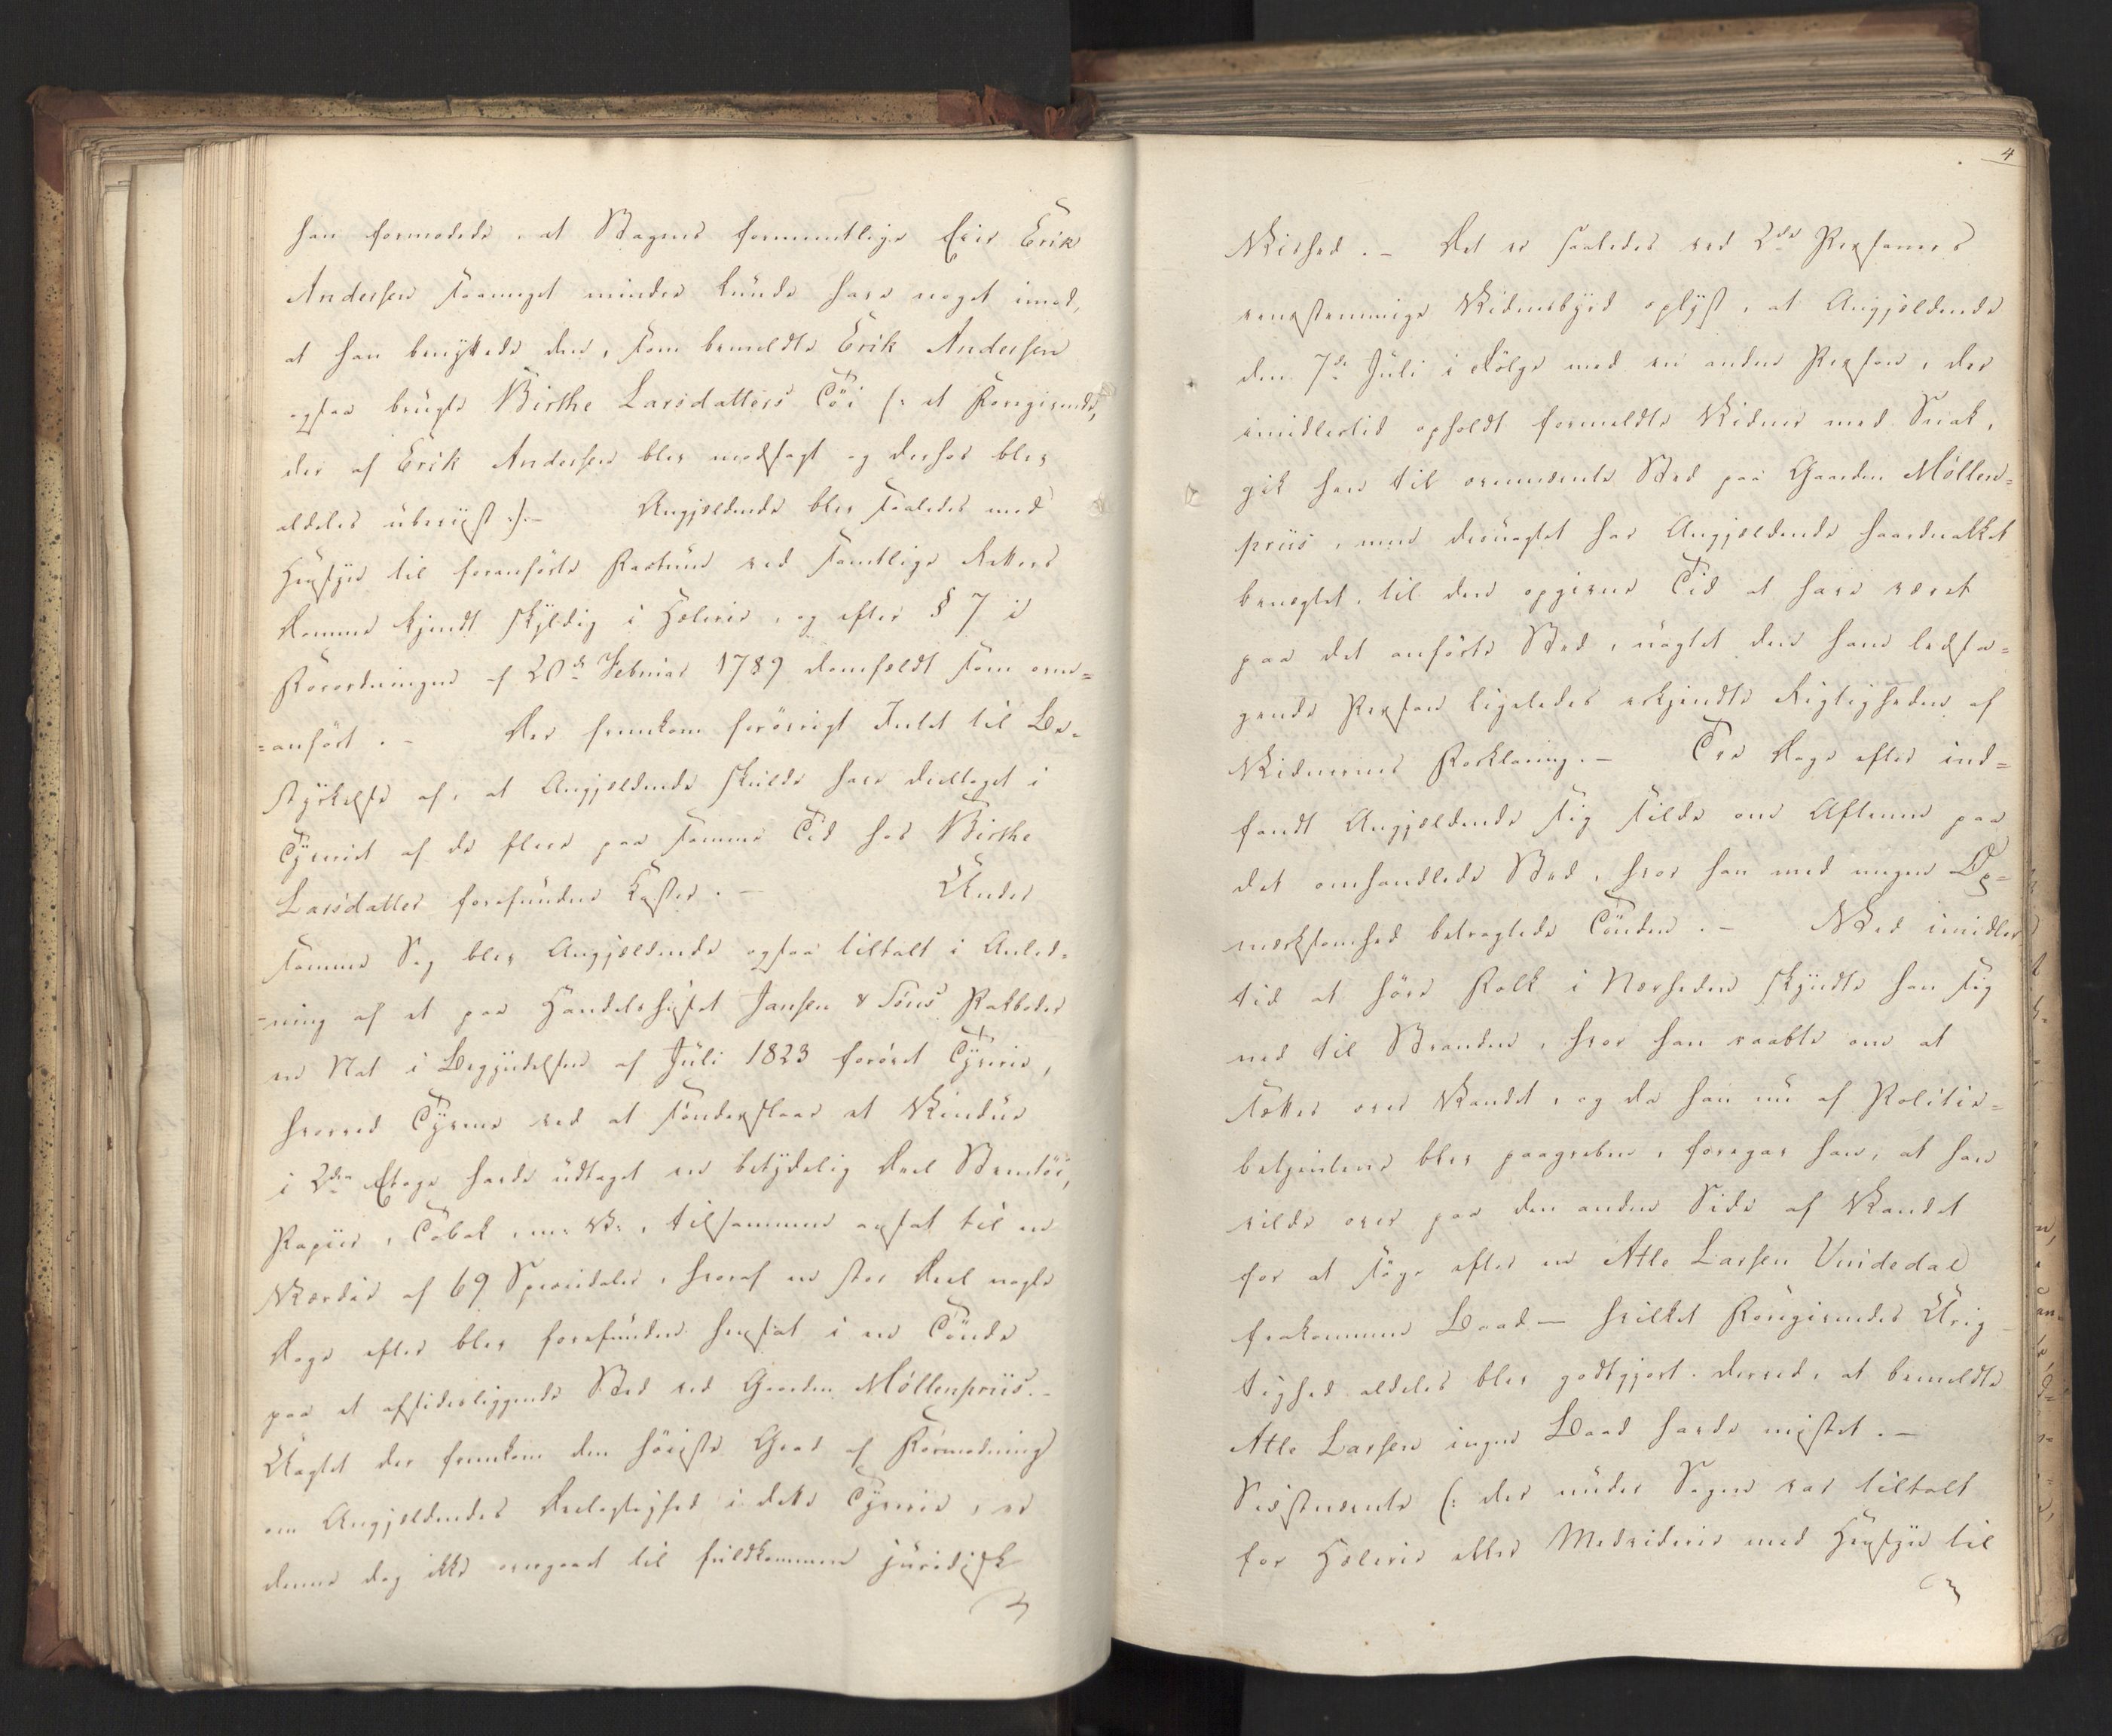 han formodede, at Vagens formentlige Eier Erik
Andersen saameget mindre kunde have noget imod,
at han benyttede den, som bemeldte Erik Andersen
ogsaa brugte Birthe Larsdatters Töi (: et Foregivende,
der af Erik Andersen blev modsagt og derhos blev
aldeles ubeviist :).– Angjeldende blev saaledes med
Hensyn til foranförte Factum ved samtlige Retters
Domme kjendt skyldig i Hæleri, og efter § 7 i
Forordningen af 20de Februar 1789 domfældt som oven=
=anfört.– Der fremkom forövrigt Intet til Be=
styrkelse af, at Angjeldende skulde have deeltaget i
Tyveriet af de flere paa samme Tid hos Birthe
Larsdatter forefundne Koster.– Under
samme Sag blev Angjeldende ogsaa tiltalt i Anled=
=ning af et paa Handelshuset Jansen & Söns Pakboder
en Nat i Begyndelsen af Juli 1823 forövet Tyverie,
hvorved Tyvene ved at sönderslaae et Vindue
i 2den Etage havde udtaget en betydelig Deel Steentöi,
Papiir, Tobak, m: V:, tilsammen ansat til en
Værdie af 69 Speciedaler, hvoraf en stor Deel nogle
Dage efter blev forefunden hensat i en Tönde
paa et afsidesliggende Sted ved Gaarden Möllenpriis.–
Uagtet der fremkom den höieste Grad af Formodning
om Angjeldendes Deelagtighed i dette Tyverie, er
denne dog ikke overgaaet til fuldkommen juridisk
4
Vished.– Det er saaledes ved 2de Personers
eenstemmige Vidnesbyrd oplyst, at Angjeldende
den 7de Juli i Fölge med en anden Person, der
imidlertid opholdt formeldte Vidner med Snak,
gik hen til ovennævnte Sted paa Gaarden Möllen=
priis, men desuagtet har Angjeldende haardnakket
benegtet, til den opgivne Tid at have været
paa det anförte Sted, uagtet den ham ledsa=
gende Person ligeledes erkjendte Rigtigheden af
Vidnernes Forklaring.– Tre Dage efter ind=
fandt Angjeldende sig silde om Aftenen paa
det omhandlede Sted, hvor han med megen Op=
mærksomhed betragtede Tönden.– Ved imidler
tid at höre Folk i Nærheden skyndte han sig
ned til Stranden, hvor han raabte om at
sættes over Vandet, og da han nu af Politie=
betjentene blev paagreben, foregav han, at han
vilde over paa den anden Side af Vandet
for at söge efter en Atle Larsen Vindedal
frakommen Baad – hvilket Foregivendes Urig
tighed aldeles blev godtgjort derved, at bemeldte
Atle Larsen ingen Baad havde mistet.–
Sidstnævnte (: der under Sagen var tiltalt
for Hælerie eller Medviderie med Hensyn til